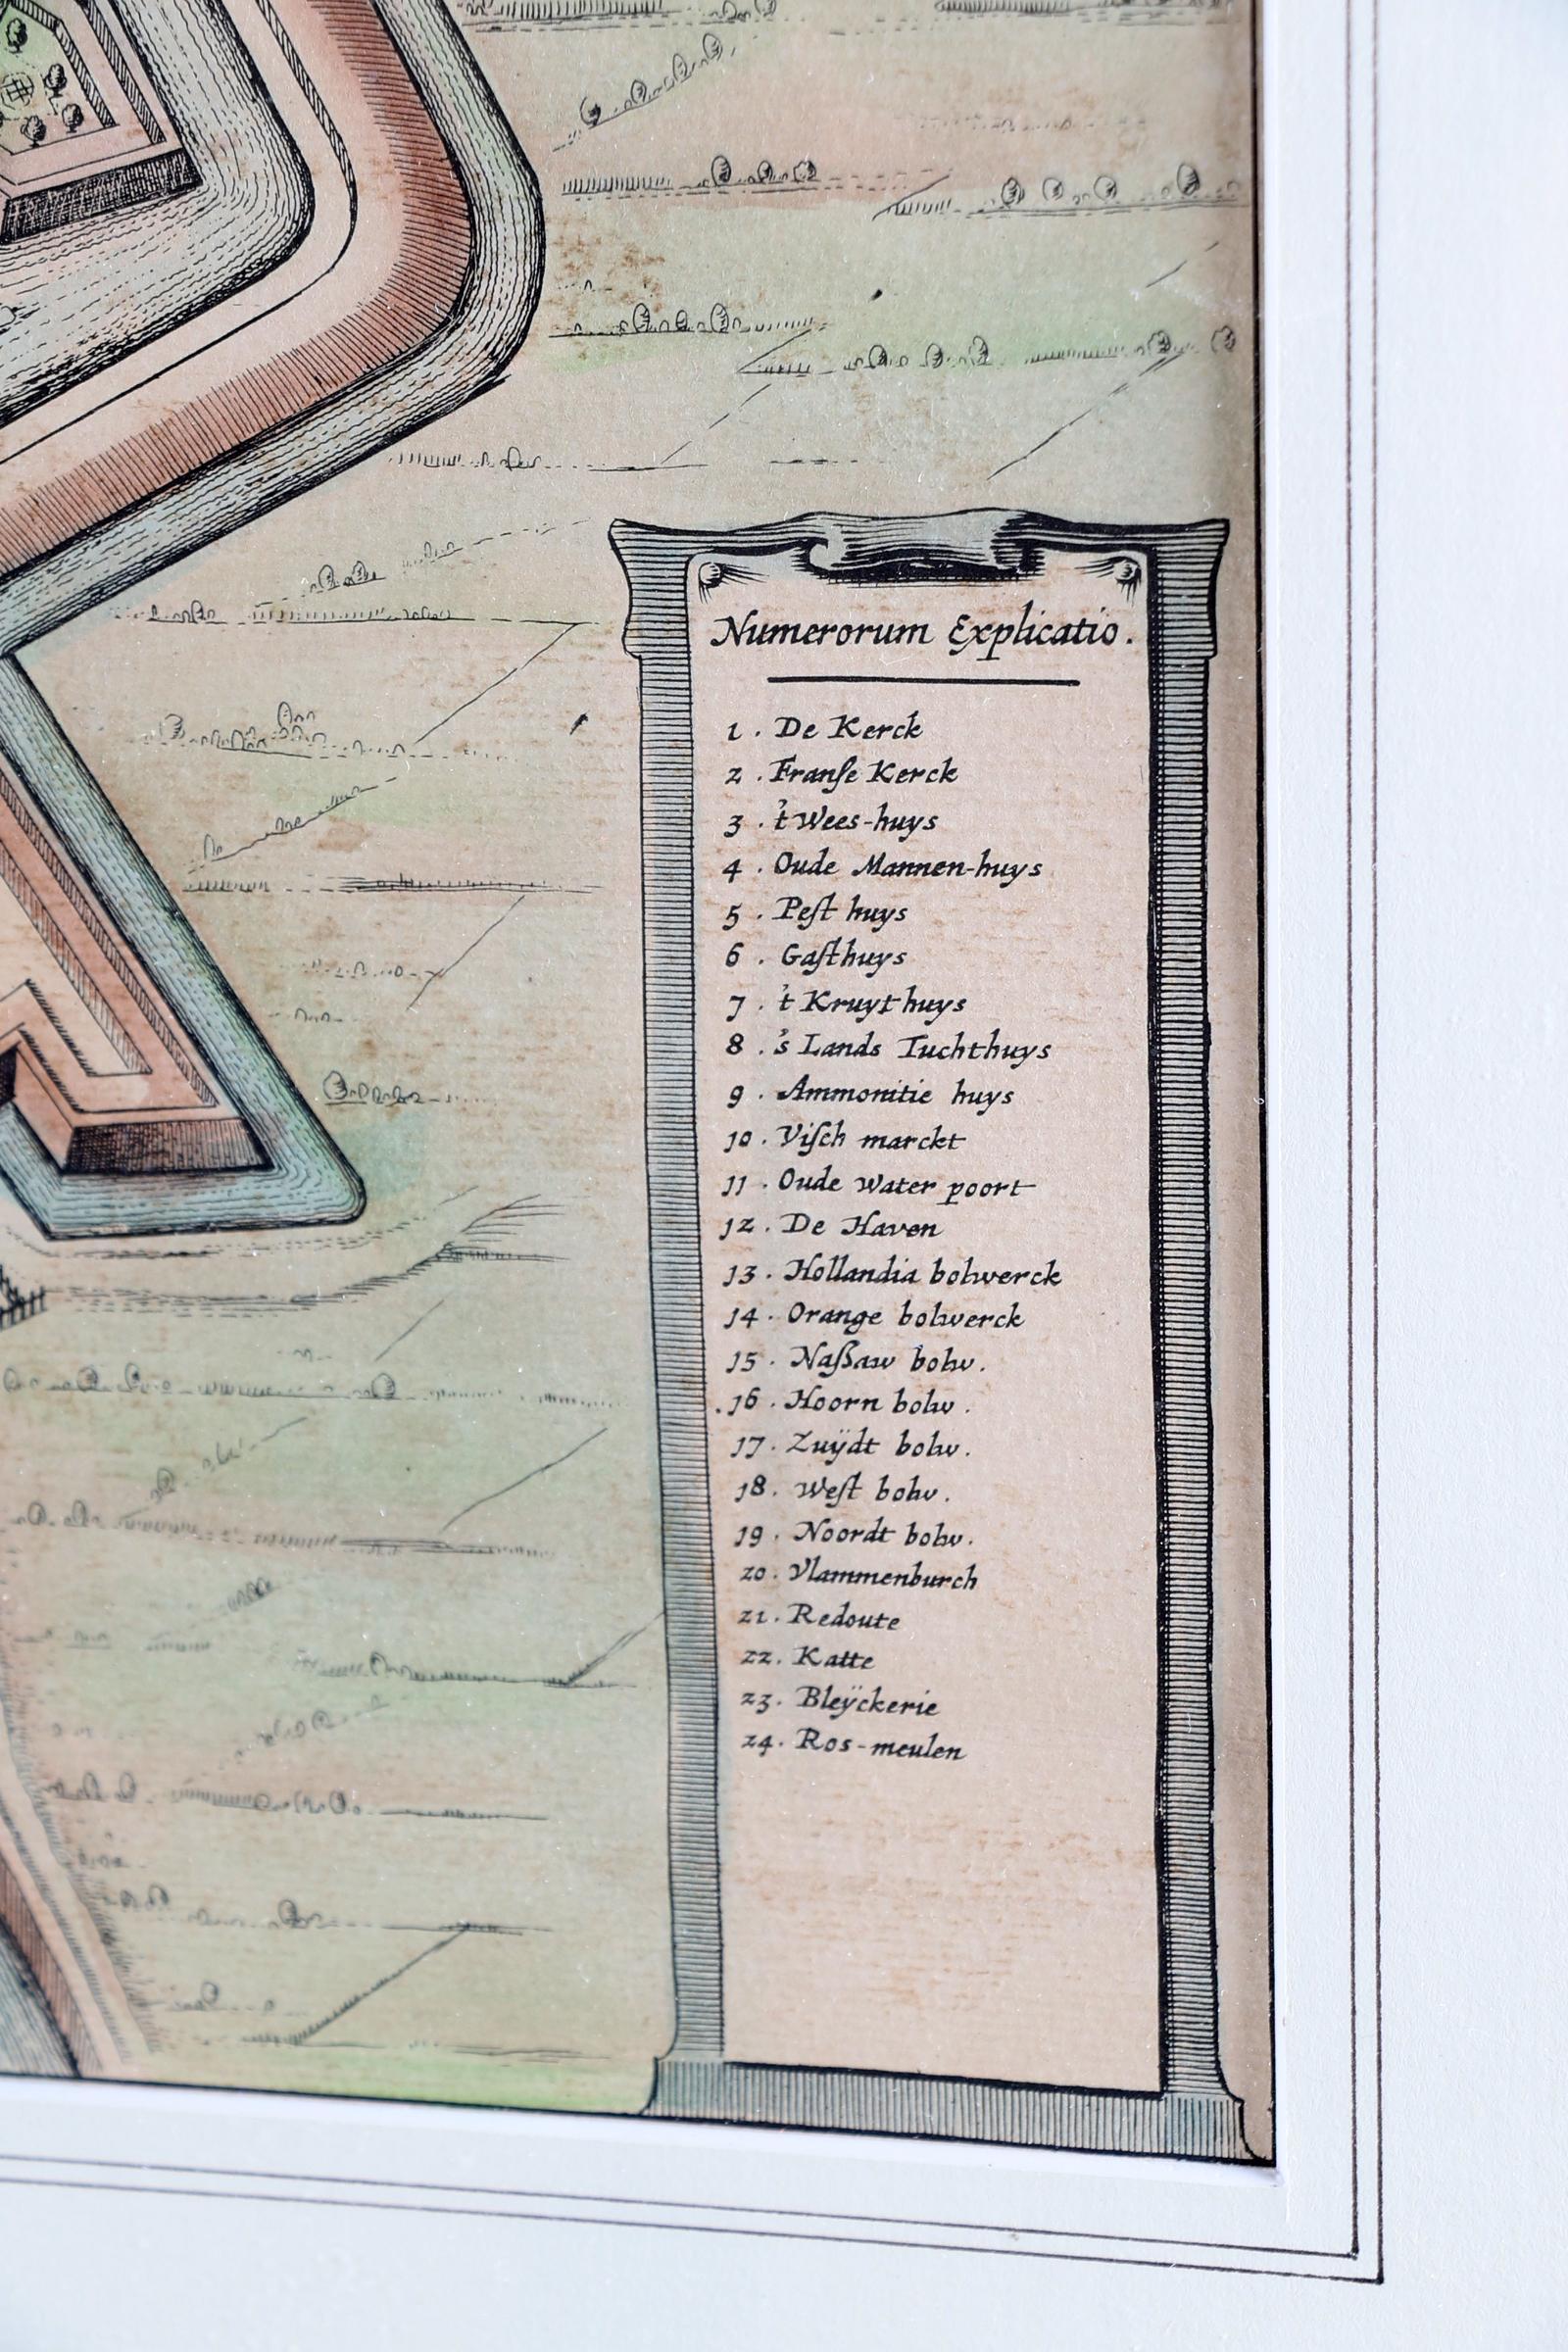 Numerorum Explicatio.
1. De Kerck
2. Franſe Kerck
3. 't Wees-huys
4. Oude Mannen-huys
5. Peſt huys
6. Gaſthuys
7. 't Kruyt huys
8. 's Lands Tuchthuys
9. Ammonitie huys
10. Viſch marckt
11. Oude Water poort
12. De Haven
13. Hollandia bolwerck
14. Orange bolwerck
15. Naßaw bolw.
16. Hoorn bolw.
17. Zuÿdt bolw.
18. Weſt bolw.
19. Noordt bolw.
20. Vlammenburch
21. Redoute
22. Katte
23. Bleÿckerie
24. Ros-meulen